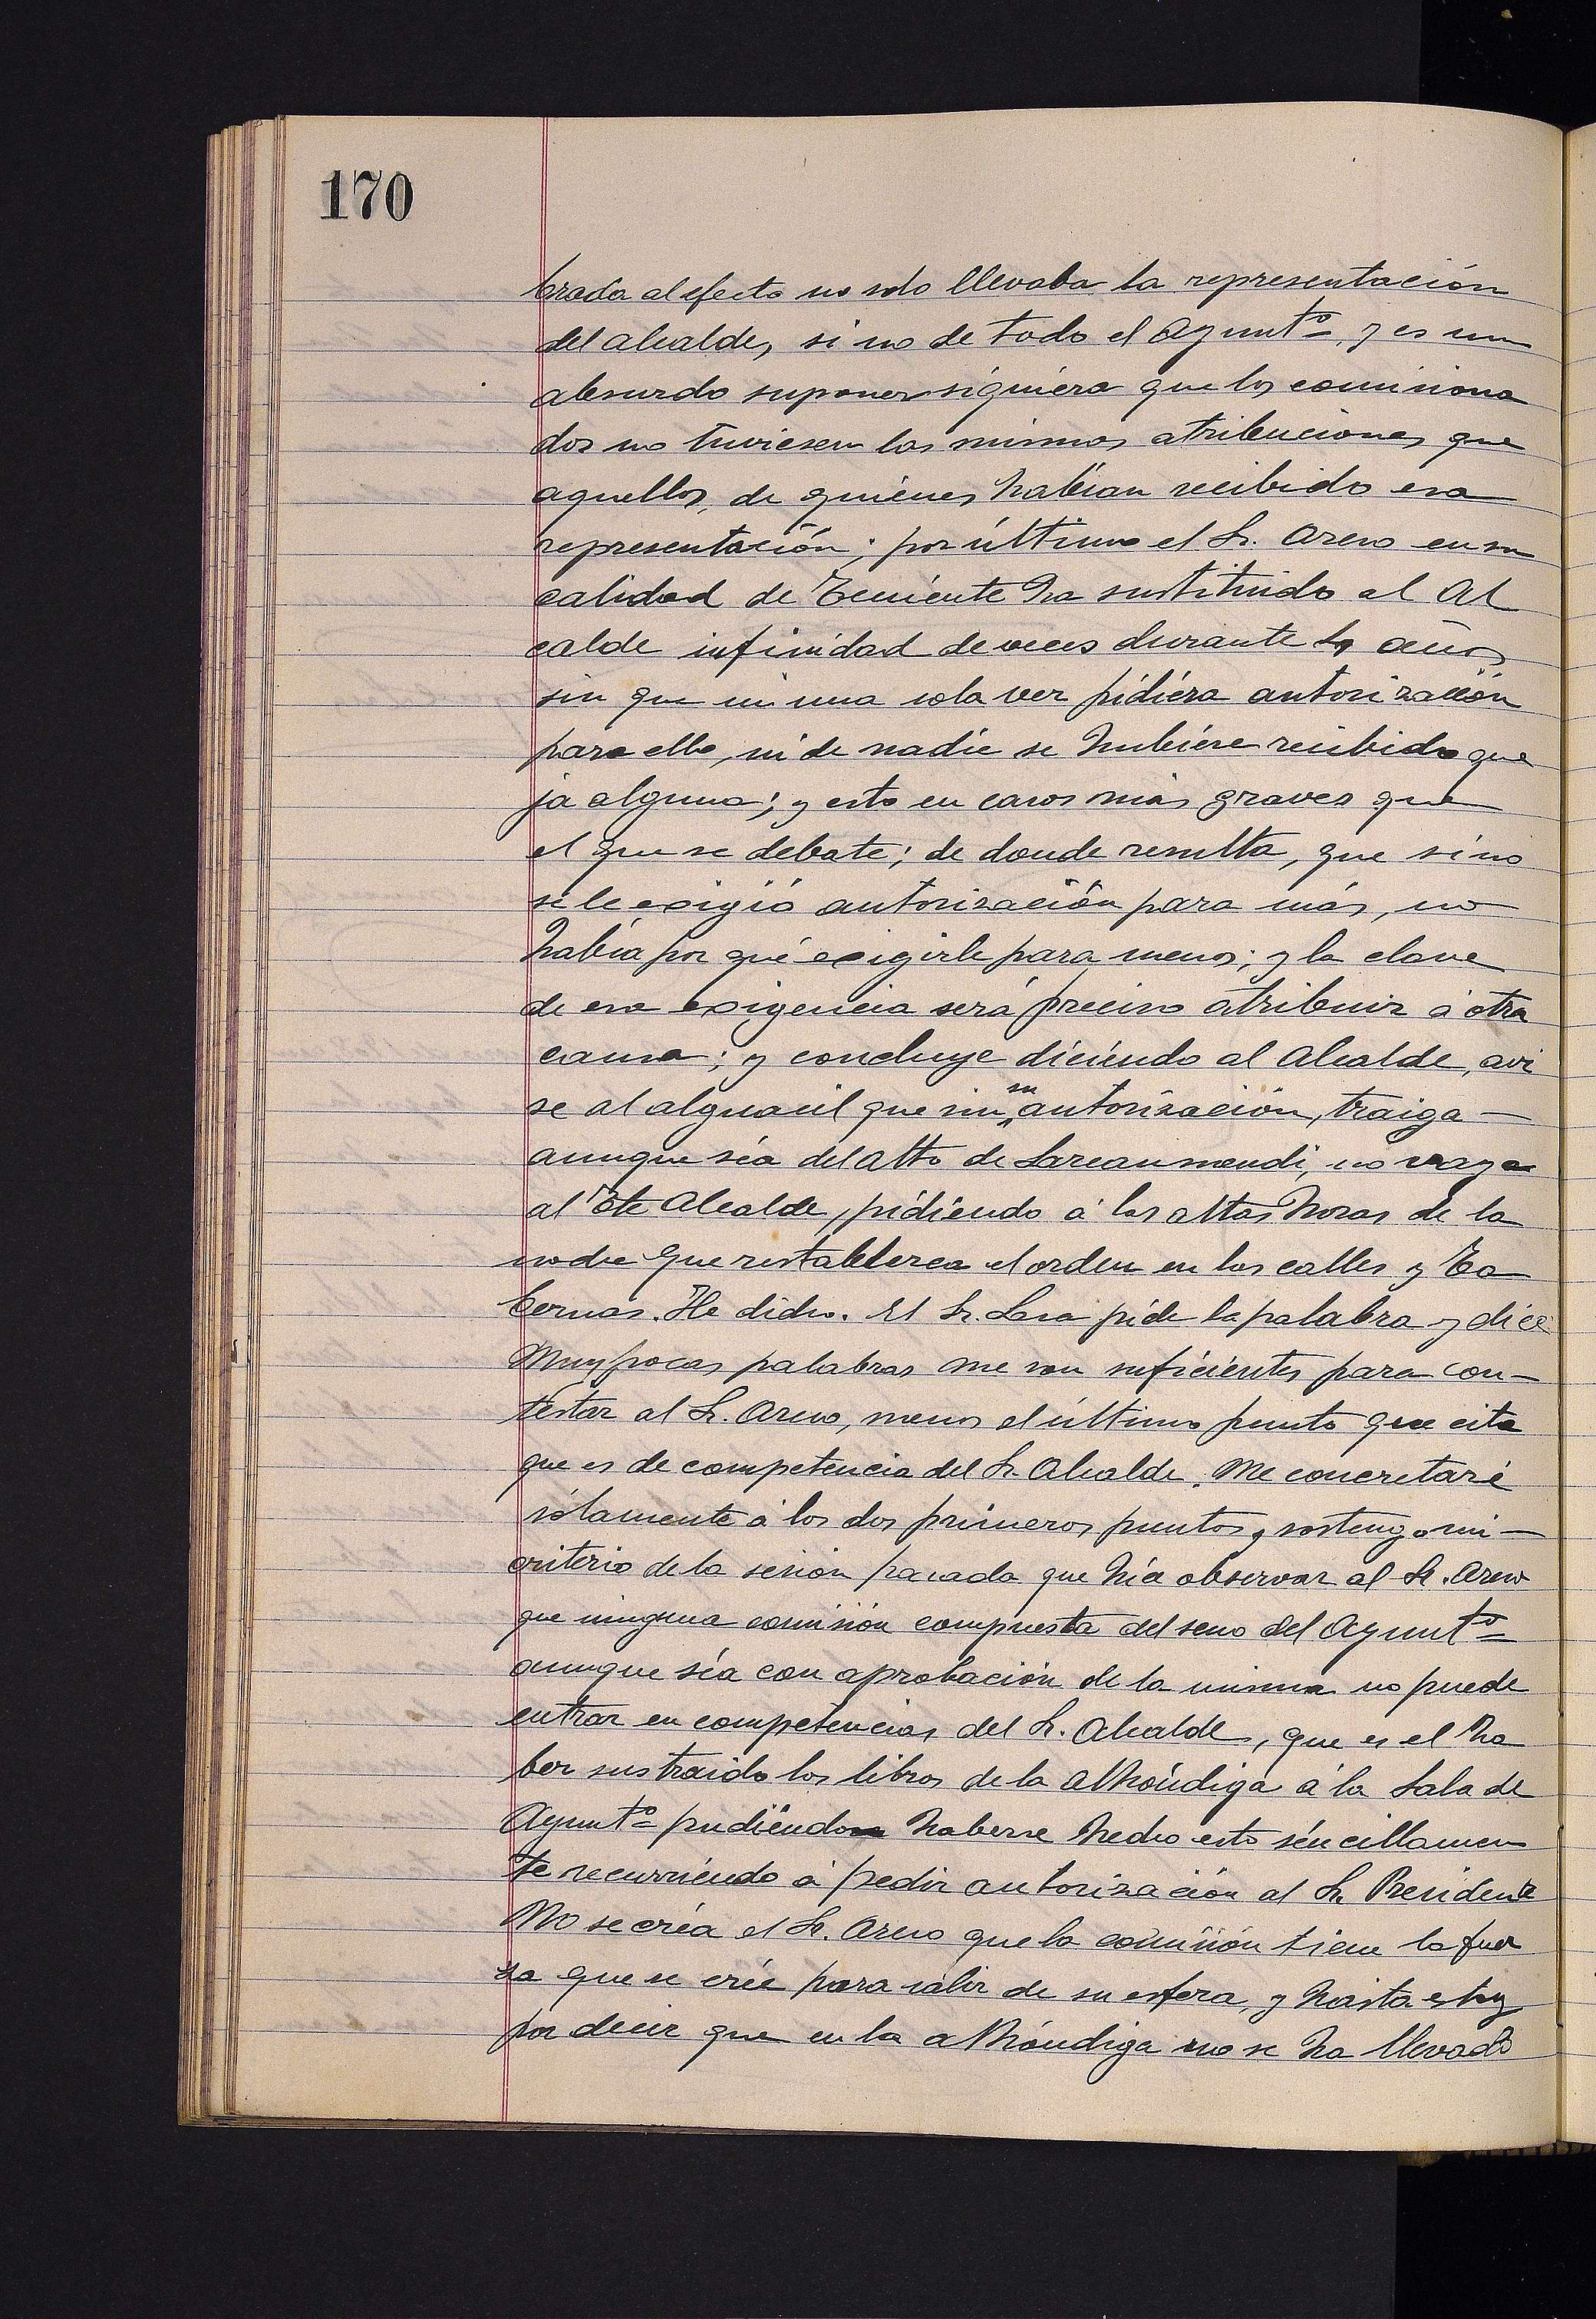 170
brada al efecto no solo llevaba la representación
del alcalde, si no de todo el Ayuntº, y es un
absurdo suponer siquiera que los comisiona
dos no tuviesen las mismas atribuciones que
aquellos, de quienes habían recibido esa
representación; por último el Sr. Areso en su
calidad de Teniente ha sustituido al Al
calde infinidad de veces durante 4 años
sin que ni una sola vez pidiera autorización
para ello, ni de nadie se hubiere recibido que
ja alguna; y esto en casos más graves que
el que se debate; de donde resulta, que si no
se le exigió autorización para más, no
había por qué exigirle para menos; y la clave
de esa exigencia será preciso atribuir á otra
causa; y concluye diciendo al Alcalde, avi
se al alguacil que sin su autorización, traiga —
aunque séa del alto de Larcaumendi, no vaya
al Tte Alcalde, pidiendo á las altas horas de la
noche que restablezca el orden en las calles y Ta
bernas. He dicho. El Sr. Lasa pide la palabra y dice
Muy pocas palabras me son suficientes para con-
testar al Sr. Areso, menos el último punto que cita
que es de competencia del Sr. Alcalde. Me concretaré
sólamente á los dos primeros puntos y sostengo mi —
criterio de la sesión pasada que hía observar al Sr. Areso
que ninguna comisión compuesta del seno del Ayuntº
aunque séa con aprobación de la misma no puede
entrar en competencias del Sr. Alcalde, que es el ha
ber sustraido los libros de la alhóndiga á la Sala de
Ayuntº pudiendo haberse hecho esto sencillamen
te recurriendo á pedir autorización al Sr. Presidente
No se créa el Sr. Areso que la comisión tiene la fuer
za que se crée para salir de su esfera, y hasta estoy
por decir que en la alhóndiga no se ha llevado